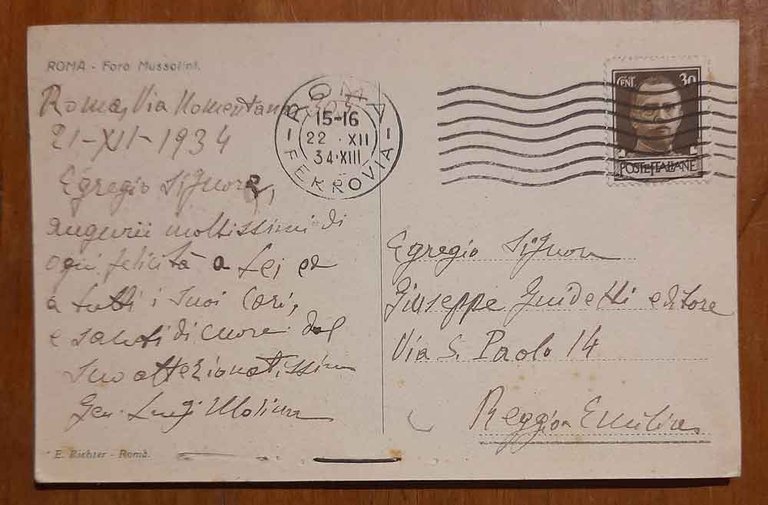 ROMA - Foro Mussolini.
Roma, Via Nomentana
21-XII-1934
Egregio Signore,
augurii moltissimi di
ogni felicità a Lei ed
a tutti i suoi Cari,
e saluti di cuore dal
Suo affezionatissimo
Gen. Luigi
E. Richter - Roma.
ROMA
15-16
22 . XII
34.XIII
FERROVIA
CENT. 30
POSTE ITALIANE
Egregio Signor
Giuseppe Guidetti editore
Via S. Paolo 14
Reggio Emilia